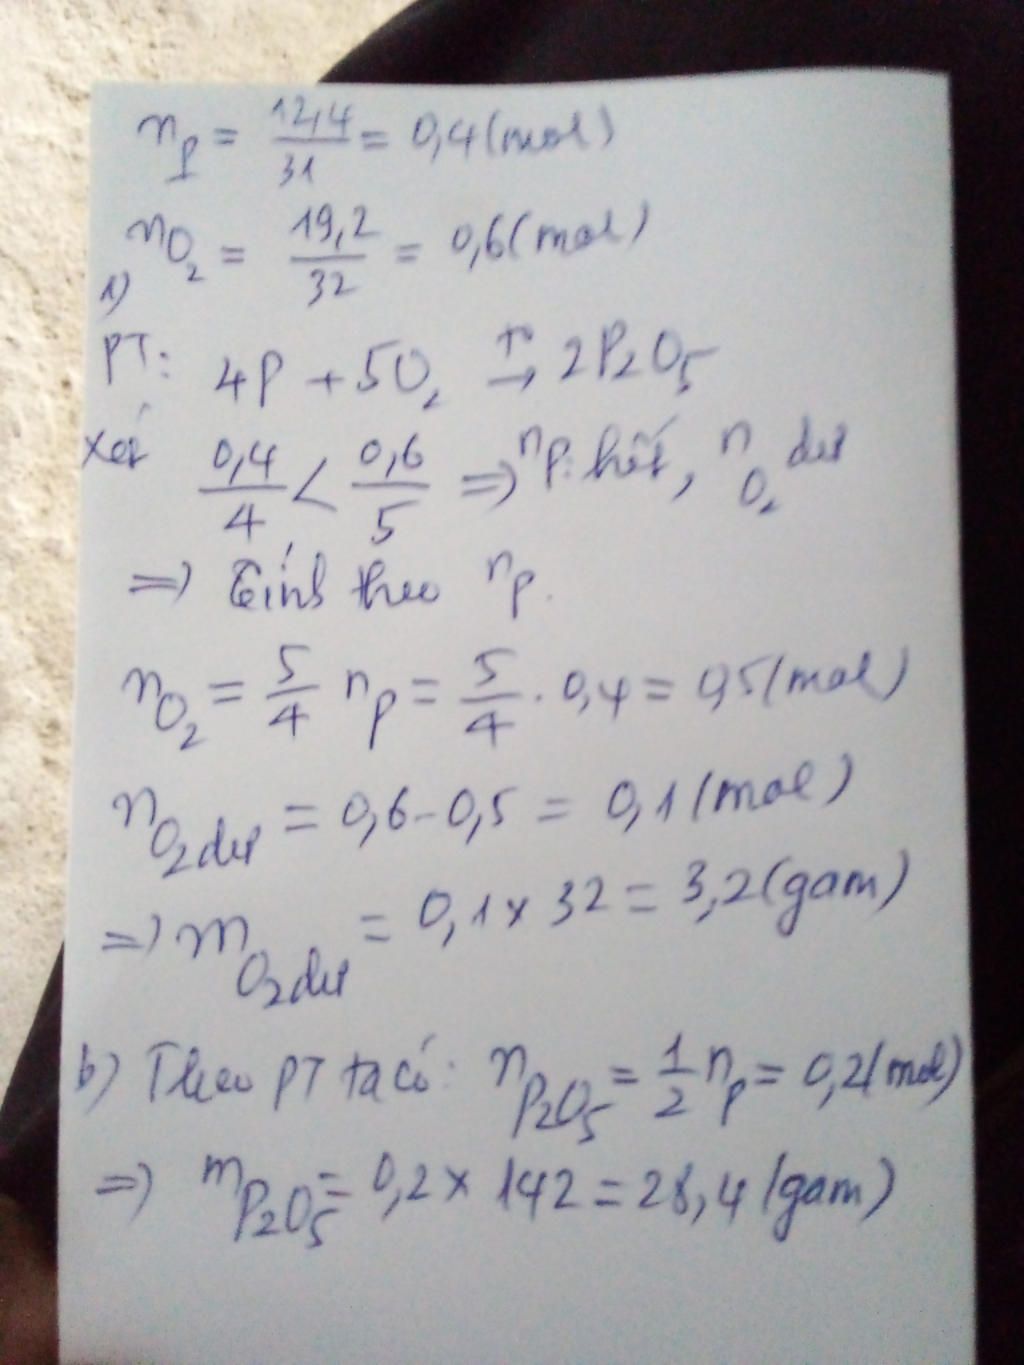 n_P = 12,4/31 = 0,4 (mol)
n_O₂ = 19,2/32 = 0,6 (mol)
1)
PT: 4P + 5O₂ →t° 2P₂O₅
Xét 0,4/4 < 0,6/5 => n_P: hết, n_O₂ dư
=> Tính theo n_P.
n_O₂ = 5/4 n_P = 5/4 . 0,4 = 0,5 (mol)
n_O₂dư = 0,6 - 0,5 = 0,1 (mol)
=> m_O₂dư = 0,1 x 32 = 3,2 (gam)
b) Theo PT ta có: n_P₂O₅ = 1/2 n_P = 0,2 (mol)
=> m_P₂O₅ = 0,2 x 142 = 28,4 (gam)